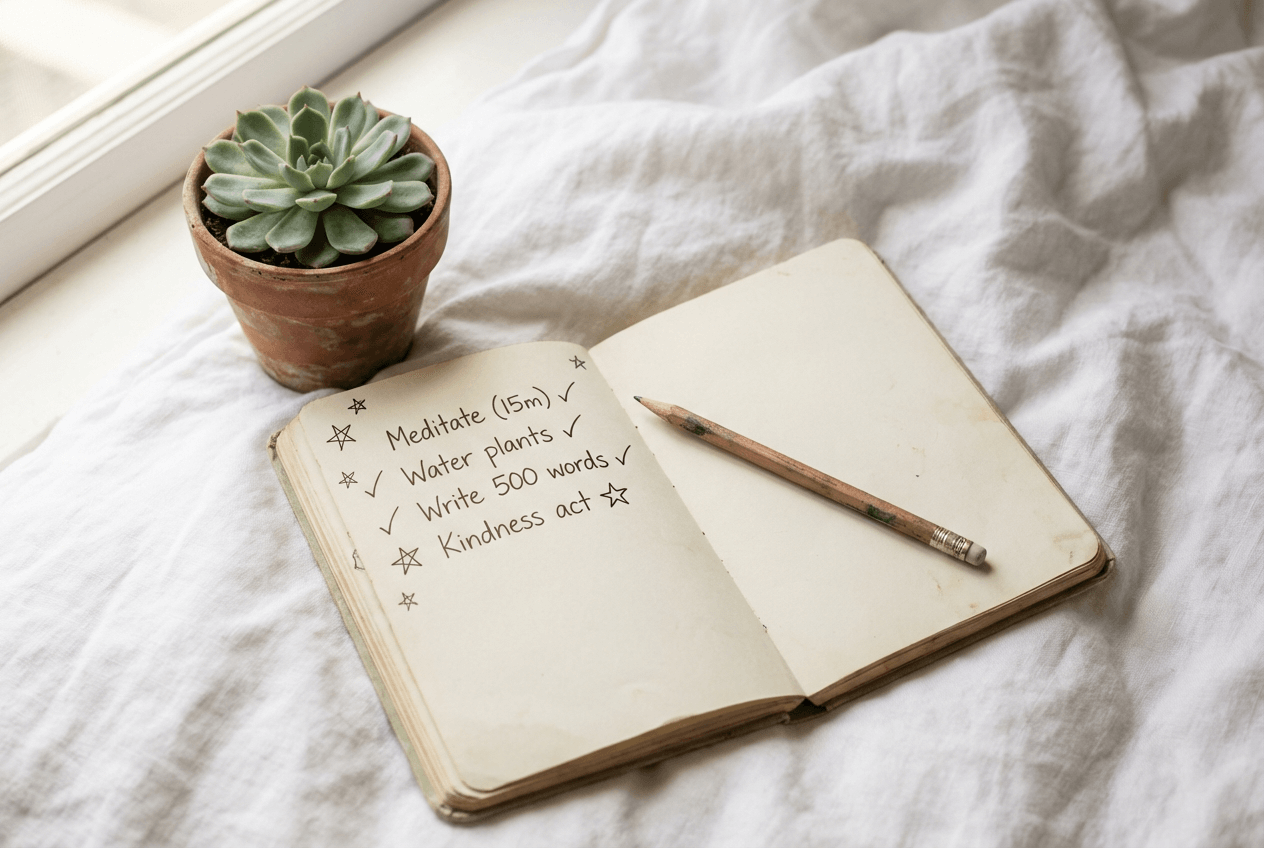 Meditate (15m) ✓
✓ Water plants ✓
✓ Write 500 words ✓
Kindness act ☆